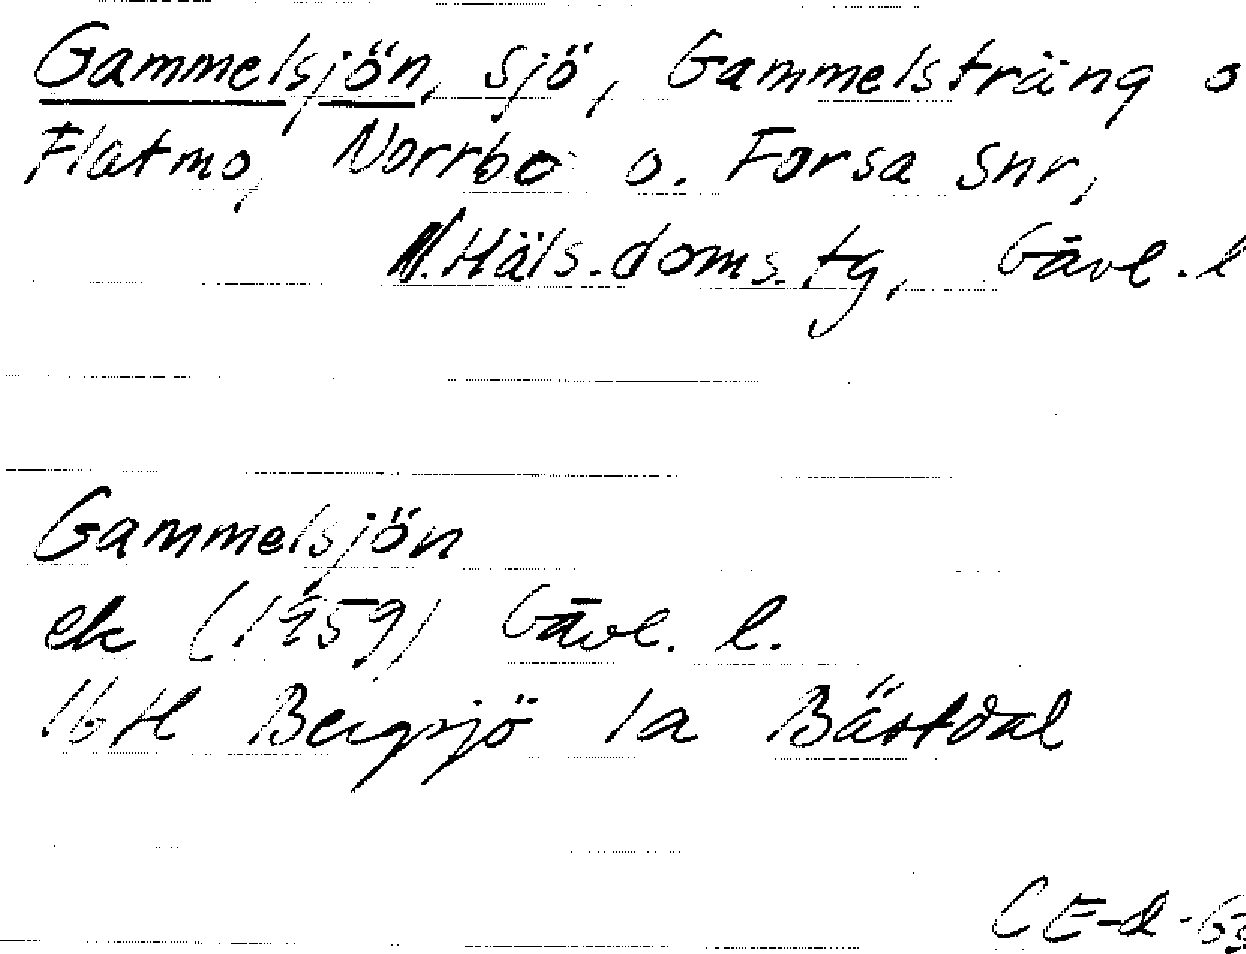 Gammelsjön, sjö, Gammelsträng o
Flatmo, Norrbo o. Forsa snr,
N. Häls. doms. tg, Gävl. l
Gammelsjön
ek (1959) Gävl. l.
16 H Bergsjö 1a Bästdal
CE-d -63